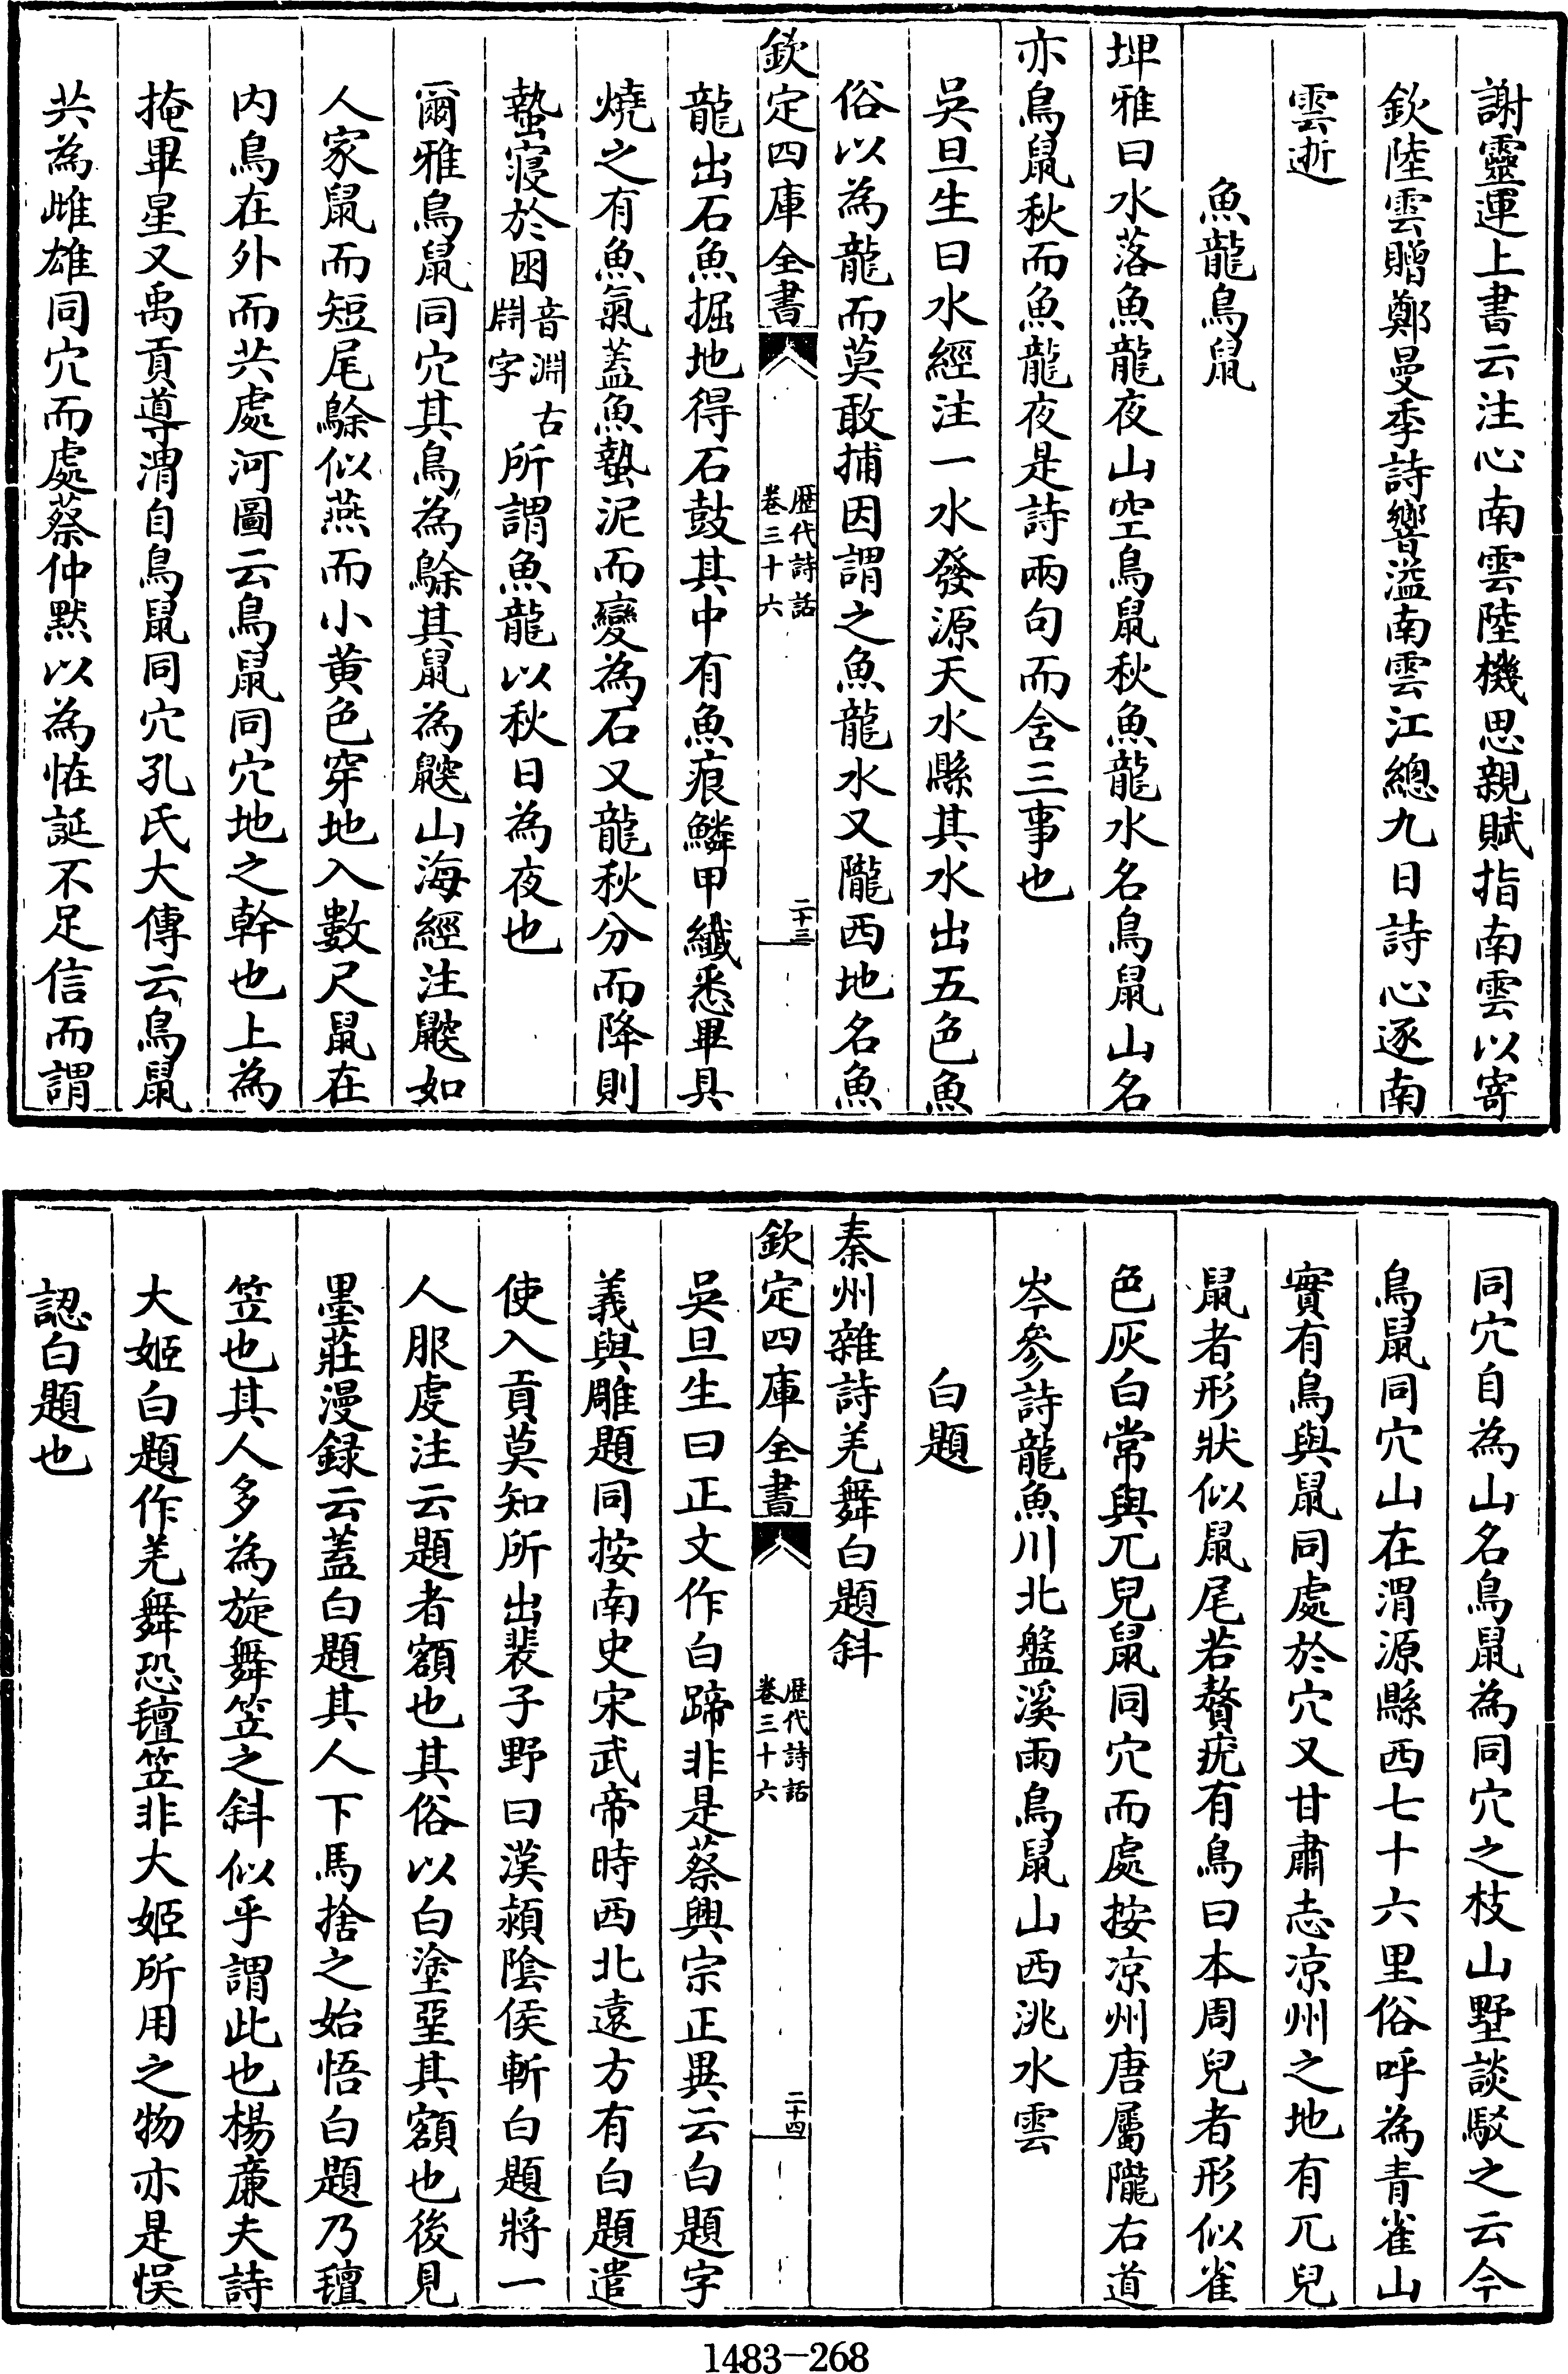 謝靈運上書云注心南雲陸機思親賦指南雲以寄
欽陸雲贈鄭曼季詩響溢南雲江總九日詩心逐南
雲逝
魚龍鳥鼠
埤雅曰水落魚龍夜山空鳥鼠秋魚龍水名鳥鼠山名
亦鳥鼠秋而魚龍夜是詩兩句而含三事也
吳旦生曰水經注一水發源天水縣其水出五色魚
俗以為龍而莫敢捕因謂之魚龍水又隴西地名魚
欽定四庫全書
歷代詩話
卷三十六
二十三
龍出石魚掘地得石鼓其中有魚痕鱗甲纖悉畢具
燒之有魚氣蓋魚蟄泥而變為石又龍秋分而降則
蟄寢於囦音淵古淵字所謂魚龍以秋日為夜也
爾雅鳥鼠同穴其鳥為鵌其鼠為鼵山海經注鼵如
人家鼠而短尾鵌似燕而小黃色穿地入數尺鼠在
內鳥在外而共處河圖云鳥鼠同穴地之幹也上為
掩畢星又禹貢導渭自鳥鼠同穴孔氏大傳云鳥鼠
共為雌雄同穴而處蔡仲默以為恠誕不足信而謂
同穴自為山名鳥鼠為同穴之枝山墅談駁之云今
鳥鼠同穴山在渭源縣西七十六里俗呼為青雀山
實有鳥與鼠同處於穴又甘肅志凉州之地有兀兒
鼠者形狀似鼠尾若贅疣有鳥曰本周兒者形似雀
色灰白常與兀兒鼠同穴而處按凉州唐屬隴右道
岑參詩龍魚川北盤溪雨鳥鼠山西洮水雲
白題
秦州雜詩羌舞白題斜
欽定四庫全書
歷代詩話
卷三十六
二十四
吳旦生曰正文作白蹄非是蔡興宗正異云白題字
義與雕題同按南史宋武帝時西北遠方有白題遣
使入貢莫知所出裴子野曰漢潁陰侯斬白題將一
人服虔注云題者額也其俗以白塗堊其額也後見
墨莊漫録云蓋白題其人下馬捨之始悟白題乃氊
笠也其人多為旋舞笠之斜似乎謂此也楊亷夫詩
大姬白題作羌舞恐氊笠非大姬所用之物亦是悮
認白題也
1483-268